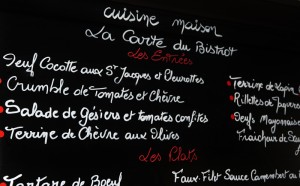 cuisine maison
La Carte du Bistrot
Les Entrées
Oeuf Cocotte aux St Jacques et Chevrottes
Crumble de Tomates et Chèvre
Salade de Gésiers et tomates confites
Terrine de Chèvre aux Olives
Terrine de Lapin
Rillettes de
Oeufs Mayonnaise
Fraîcheur de
Les Plats
Tartare de Boeuf
Faux-Filet Sauce Camembert au